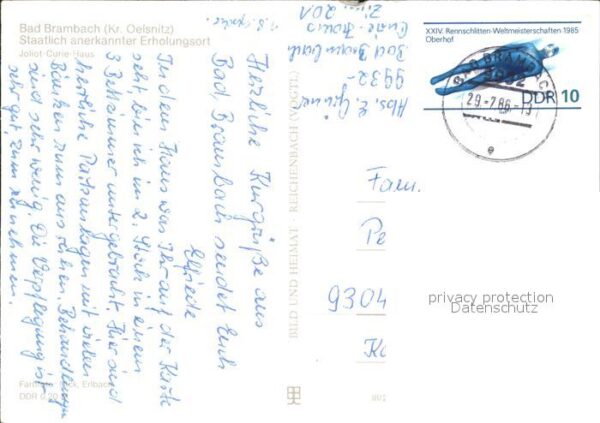 Bad Brambach (Kr. Oelsnitz)
Staatlich anerkannter Erholungsort
Joliot-Curie-Haus
Herzliche Kurgrüße aus
Bad Brambach sendet Euch
Elfriede
In dem Haus was Ihr auf der Karte
seht bin ich im 2. Stock in einem
3 Bettzimmer untergebracht. Hier sind
herrliche Parkanlagen mit vielen
Bänken zum ausruhen. Behandlungen
sind sehr wenig. Die Verpflegung ist
sehr gut zum zunehmen.
Abs. E.
9932
Bad Brambach
Curie-Haus
Zi. 201
BILD UND HEIMAT REICHENBACH (VOGTL)
XXIV. Rennschlitten-Weltmeisterschaften 1985
Oberhof
DDR 10
BAD BRAMBACH
9932
29.-7.86.-
e
Fam.
Pe
9304
Ko
privacy protection
Datenschutz
Erlbach
DDR